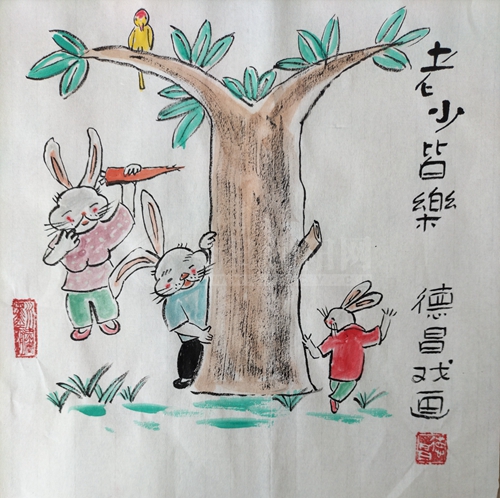 老少皆樂
德昌戏画